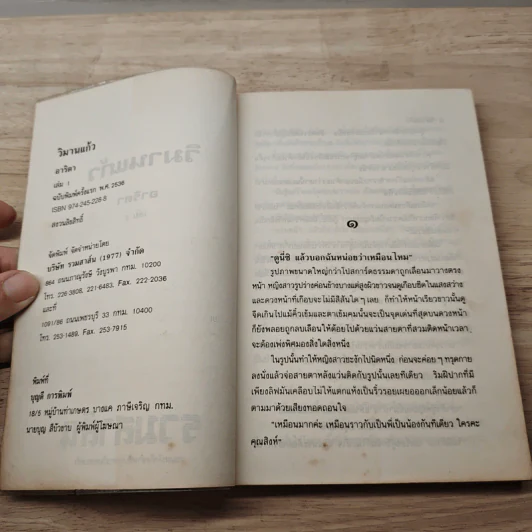 วิมานแก้ว
อาริตา
เล่ม 1
ฉบับพิมพ์ครั้งแรก พ.ศ. 2536
ISBN 974-245-228-5
สงวนลิขสิทธิ์
จัดพิมพ์ จัดจำหน่ายโดย
บริษัท รวมสาส์น (1977) จำกัด
864 ถนนภาณุรังษี วังบูรพา กทม. 10200
โทร. 226-3808, 221-6483, Fax. 222-2036
และที่
1091/86 ถนนเพชรบุรี 33 กทม. 10400
โทร. 253-1489, Fax. 253-7915
พิมพ์ที่
บุญดี การพิมพ์
18/5 หมู่บ้านท่าเกษตร บางแค ภาษีเจริญ กทม.
นายบุญ ผู้พิมพ์ผู้โฆษณา
๑
"ดูนี่ซิ แล้วบอกฉันหน่อยว่าเหมือนไหม"
รูปภาพขนาดใหญ่กว่าโปสการ์ดธรรมดาถูกเลื่อนมาวางตรง
หน้า หญิงสาวรูปร่างค่อนข้างบางแต่สูงผิวขาวจนดูเกือบซีดในแสงสว่าง
และดวงหน้าที่เกือบจะไม่มีสีสันใดๆ เลย ก็ทำให้หน้าเรียวยาวนั้นดู
จืดเกินไปแม้คิ้วเข้มและตาเข้มคมนั้นจะเป็นจุดเด่นที่สุดบนดวงหน้า
ก็ยังพลอยถูกลบเลือนให้ด้อยไปด้วยแว่นสายตาที่สวมติดหน้าเวลา
จะต้องเพ่งพิศมองสิ่งใดสิ่งหนึ่ง
ในรูปนั้นทำให้หญิงสาวชะงักไปนิดหนึ่ง ก่อนจะค่อยๆ ทรุดกาย
ลงนั่งแล้วจ่อสายตาหลังแว่นติดกับรูปนั้นเลยทีเดียว ริมฝีปากที่มี
เพียงลิปมันเคลือบไม่ให้แตกแห้งเป็นริ้วรอยเผยออกเล็กน้อยแล้วก็
ตามมาด้วยเสียงทอดถอนใจ
"เหมือนมากค่ะ เหมือนราวกับเป็นพี่เป็นน้องกันทีเดียว ใครคะ
คุณสิงห์"